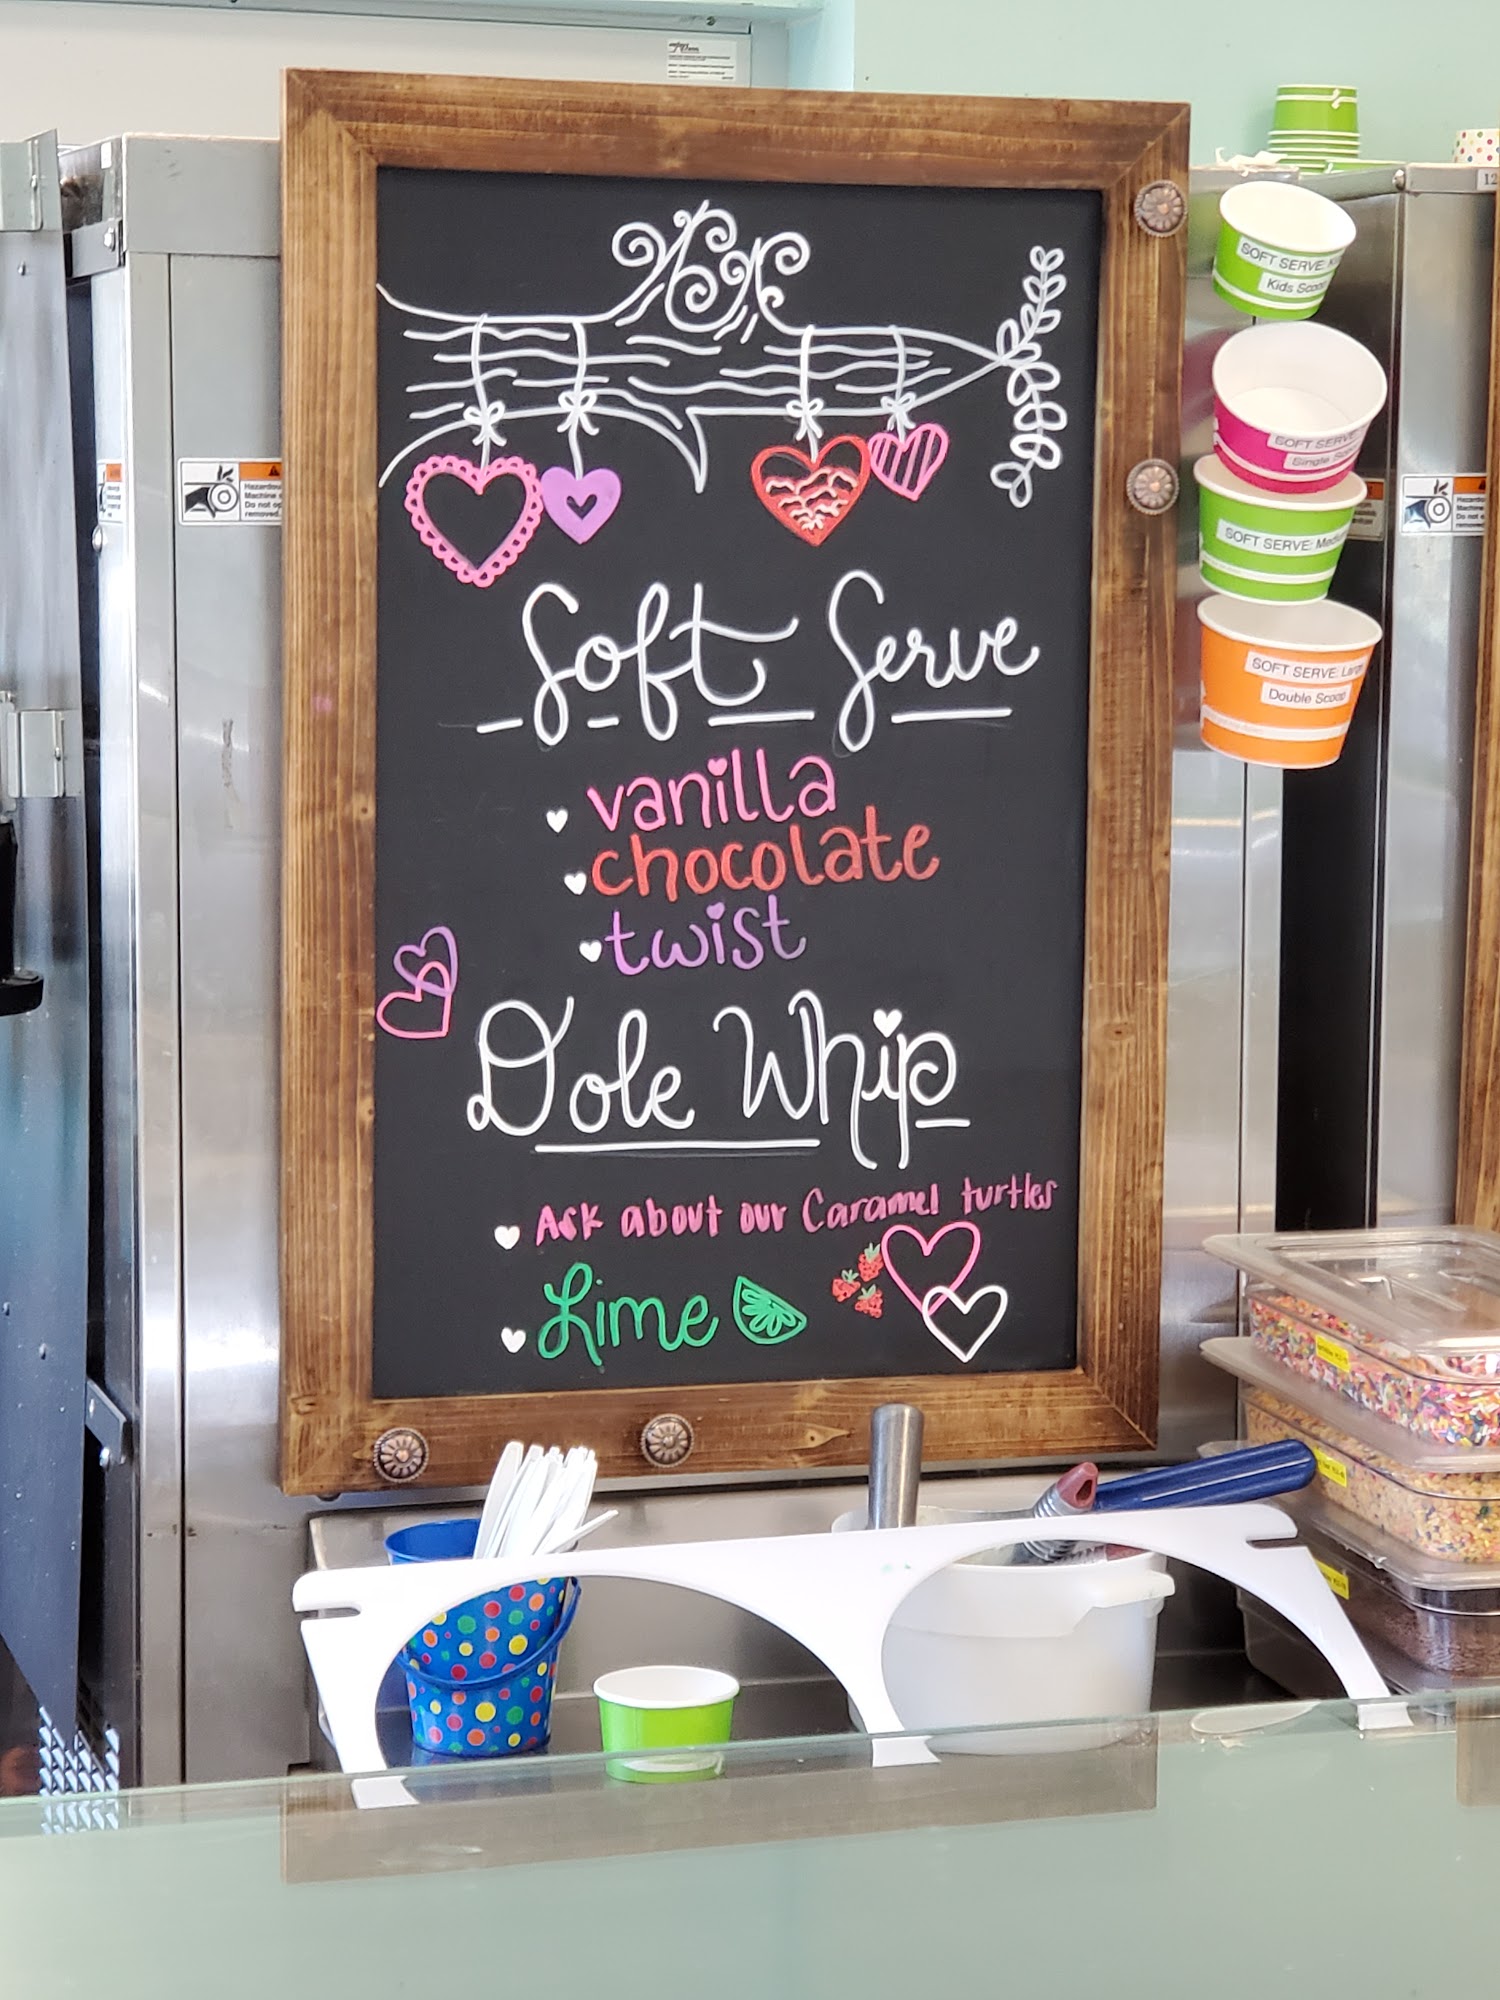 Soft Serve
vanilla
chocolate
twist
Dole Whip
Ask about our Caramel turtles
Lime
SOFT SERVE:
Kids Scoop
SOFT SERVE
Single
SOFT SERVE:
SOFT SERVE: Large
Double Scoop
Hazardous
Machine
Do not
removed.
12